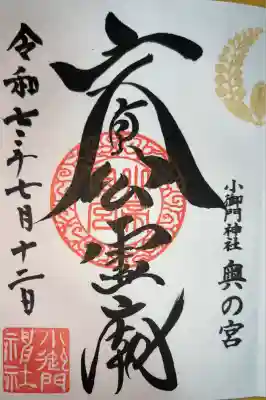 小御門神社 奥の宮
文貞公霊廟
令和七年七月十二日
小御門